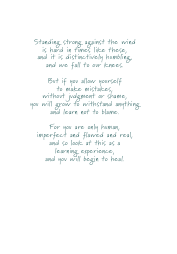 Standing strong against the wind
is hard in times like these,
and it is distinctively humbling,
and we fall to our knees.

But if you allow yourself
to make mistakes,
without judgment or shame,
you will grow to withstand anything,
and learn not to blame.

For you are only human,
imperfect and flawed and real,
and so look at this as a
learning experience,
and you will begin to heal.